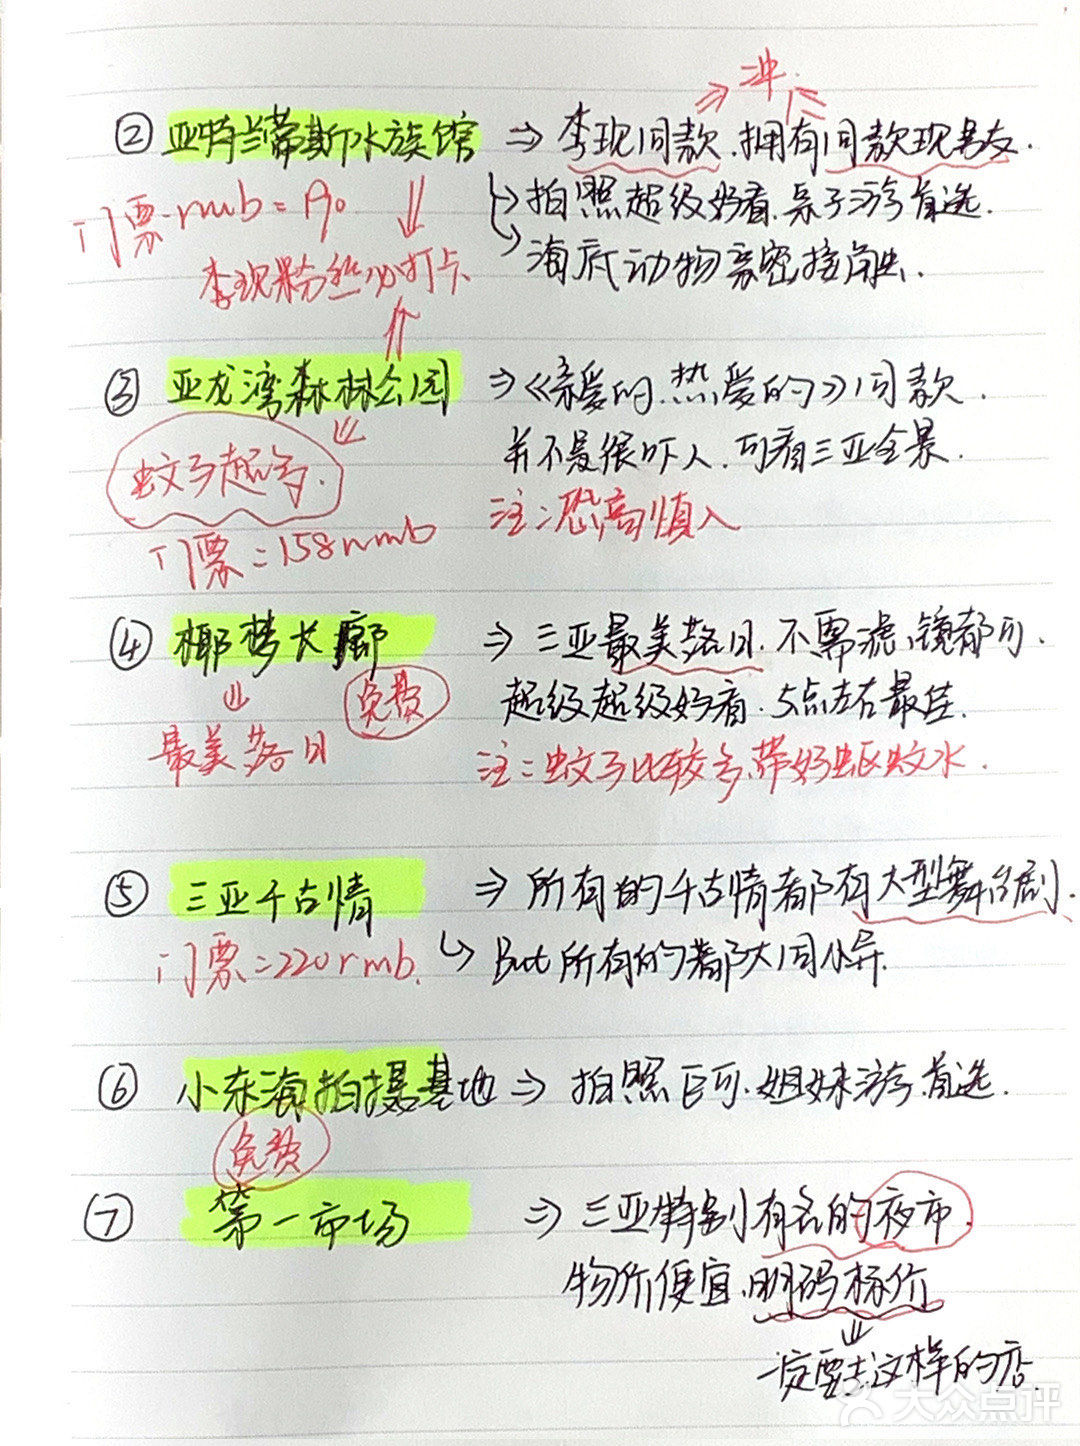 冲
② 亚特兰蒂斯水族馆 ⇒ 李现同款.拥有同款现男友.
门票.rmb=190 ↳拍照超级好看.亲子游首选.
李现粉丝必打卡 海底动物亲密接触.
③ 亚龙湾森林公园 ⇒《亲爱的.热爱的》同款.
蚊子超多. 并不是很吓人.可看三亚全景.
门票=158rmb 注:恐高慎入
④ 椰梦长廊 ⇒ 三亚最美落日.不需滤镜都可.
免费 超级超级好看.5点左右最佳.
最美落日 注:蚊子比较多,带好驱蚊水.
⑤ 三亚千古情 ⇒ 所有的千古情都有大型舞台剧.
门票=220rmb. ↳ But所有的都大同小异.
⑥ 小东海拍摄基地 ⇒ 拍照巨可.姐妹游首选.
免费
⑦ 第一市场 ⇒ 三亚特别有名的夜市.
物价便宜.明码标价
一定要去这样的店.
大众点评